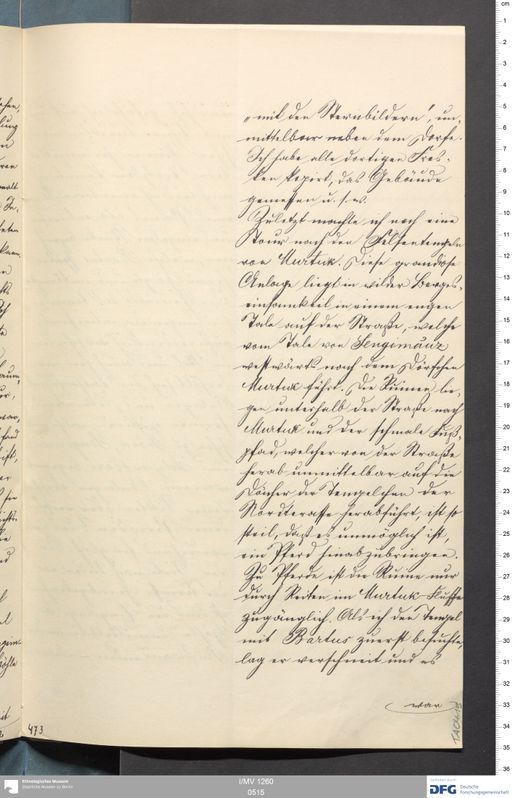 „mit den Sternbildern“, un-
mittelbar neben dem Dorfe.
Ich habe alle dortigen Fres-
ken kopiert, das Gebäude
gemessen u. s. w.
Zuletzt machte ich noch eine
Tour nach den Felsentempeln
von Murtuk. Diese grandiöse
Anlage liegt in wilder Berges-
einsamkeit in einem engen
Tale auf der Straße, welche
vom Tale von Sengimäuz
westwärts nach dem Dörfchen
Murtuk führt. Die Ruinen lie-
gen unterhalb der Straße nach
Murtuk und der schmale Fuß-
pfad, welcher von der Straße
herab unmittelbar auf die
Dächer der Tempelchen der
Nordterasse herabführt, ist so
steil, daß es unmöglich ist,
ein Pferd hinabzubringen.
Zu Pferde ist die Ruine nur
durch Reiten im Murtuk-Flusse
zugänglich. Als ich den Tempel
mit Bartus zuerst besuchte,
lag er verschneit und es
war
473
TA0415
Ethnologisches Museum
Staatliche Museen zu Berlin
I/MV 1260
0515
DFG
Deutsche
Forschungsgemeinschaft